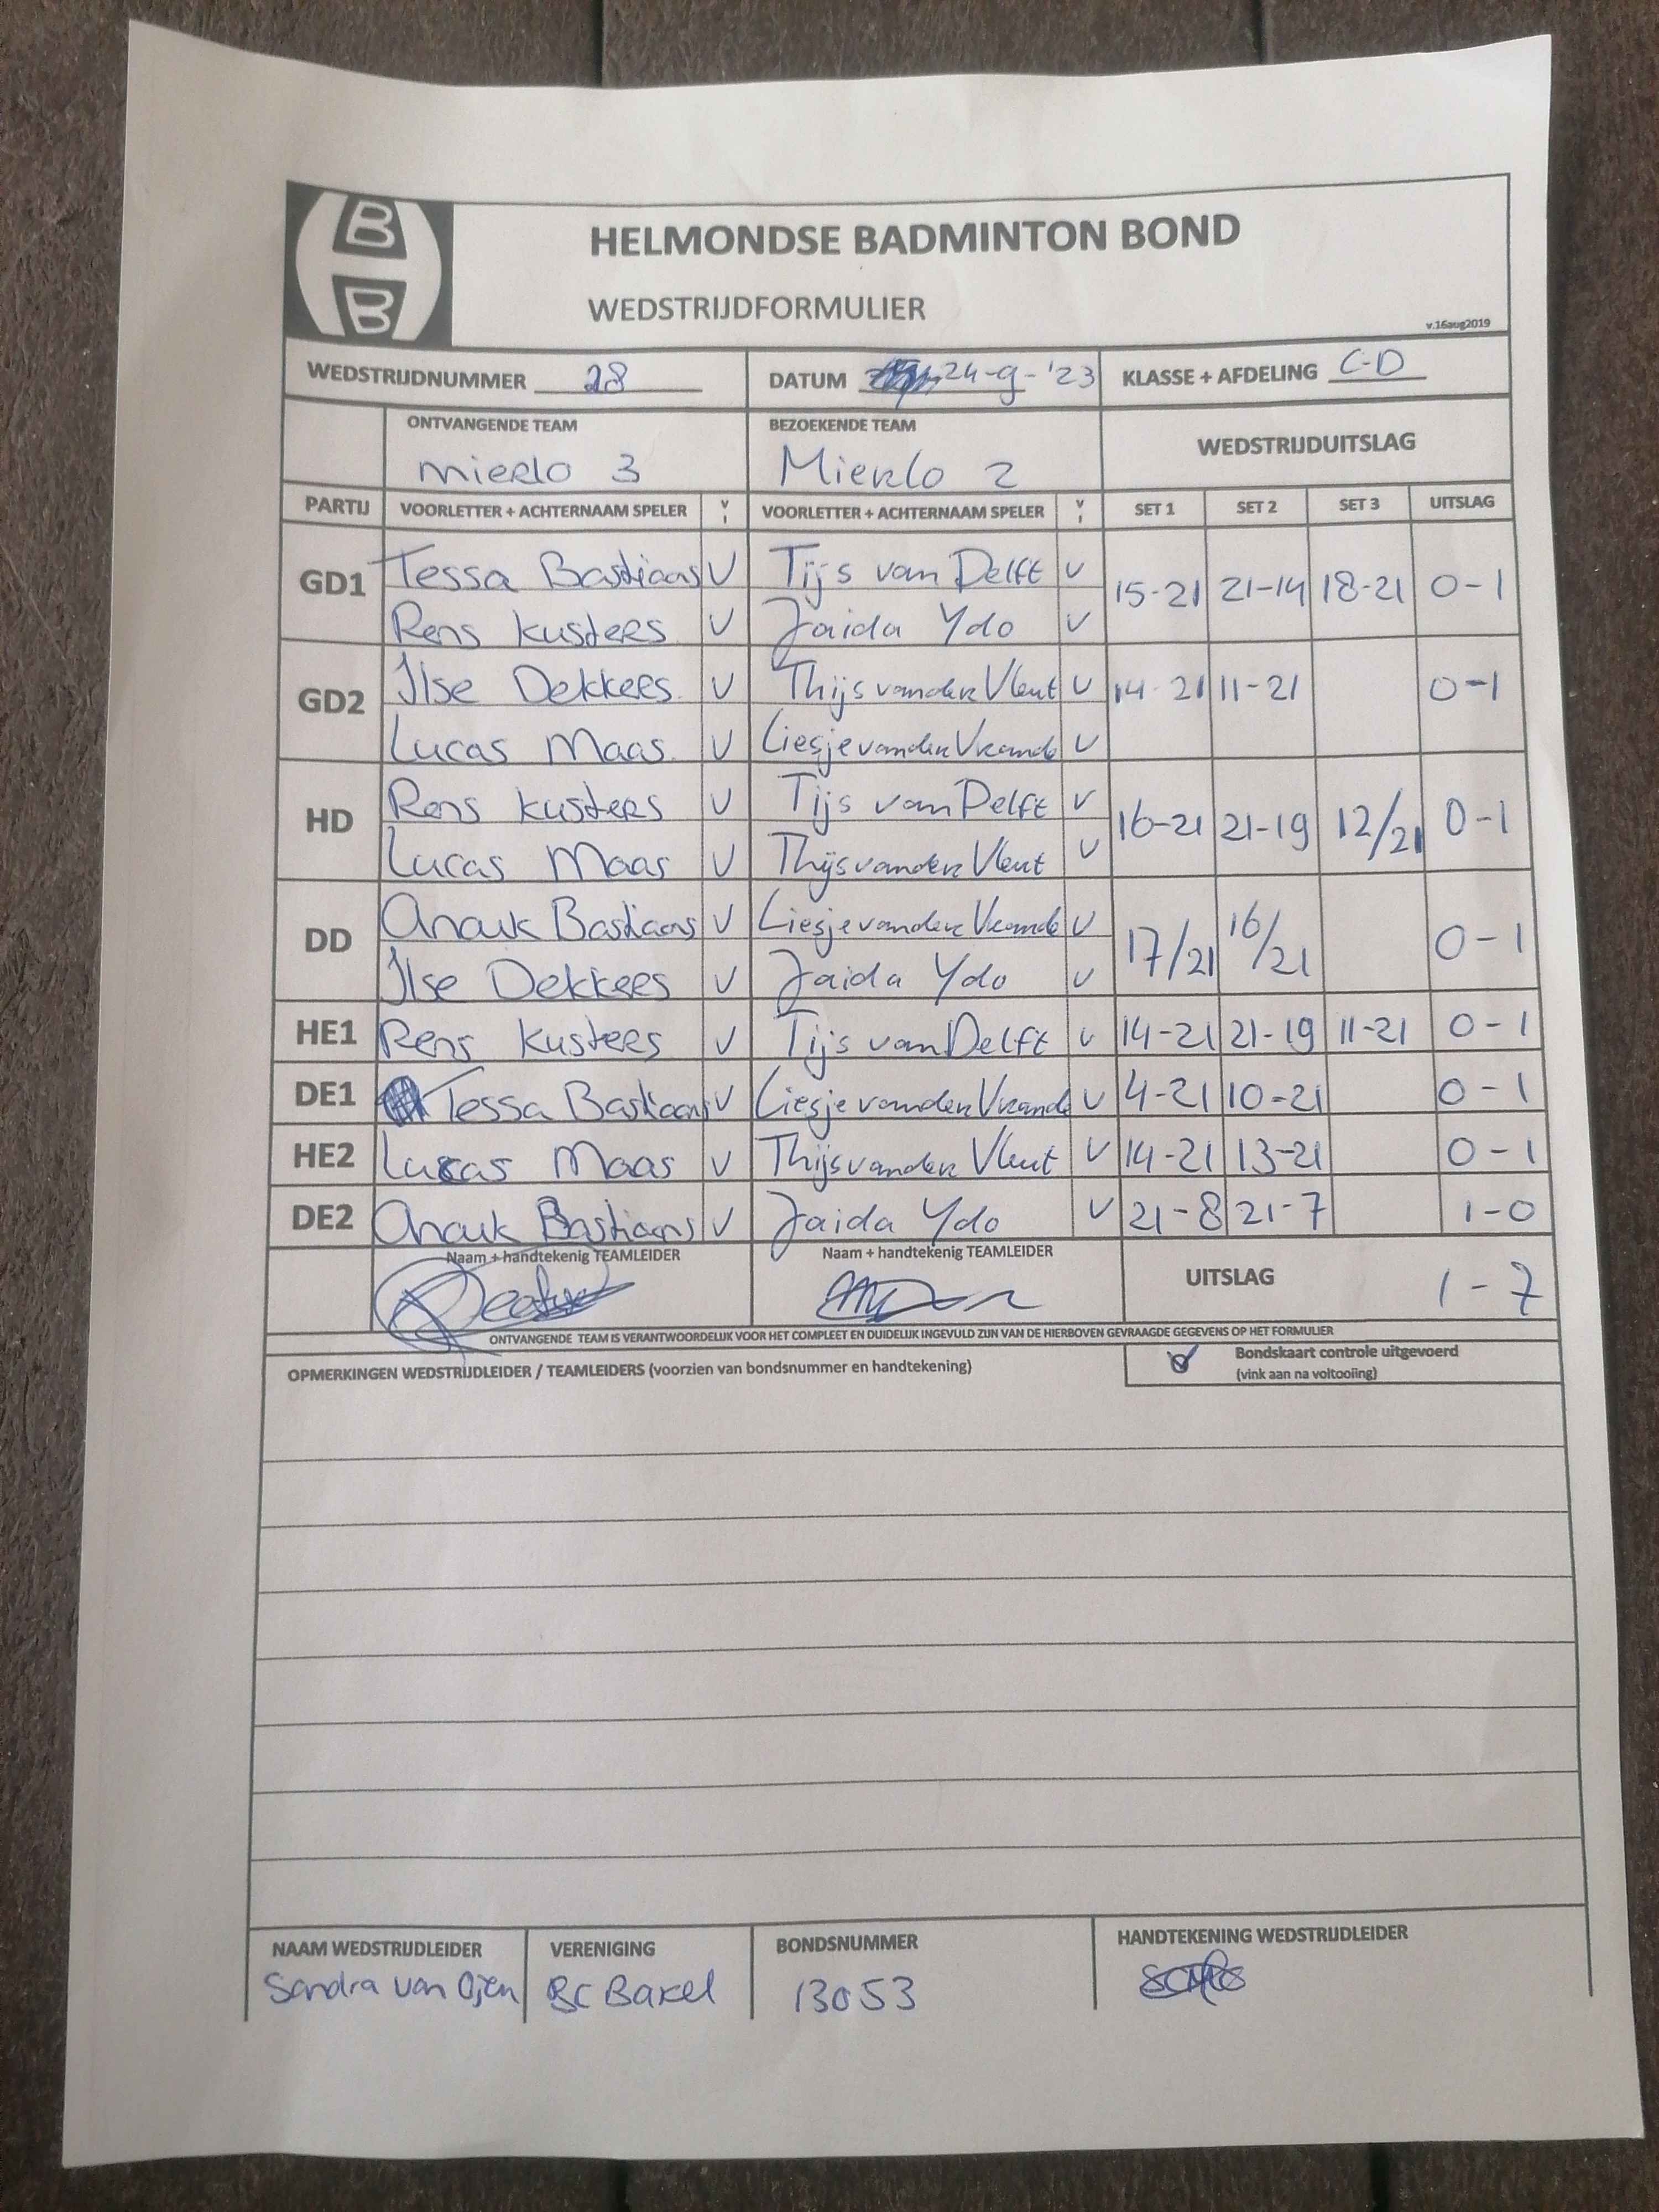 B
B
HELMONDSE BADMINTON BOND
WEDSTRIJDFORMULIER
v.16aug2019
WEDSTRIJDNUMMER 28 DATUM 24-9-'23 KLASSE + AFDELING C-D
ONTVANGENDE TEAM BEZOEKENDE TEAM WEDSTRIJDUITSLAG
Mierlo 3 Mierlo 2
PARTIJ VOORLETTER + ACHTERNAAM SPELER V VOORLETTER + ACHTERNAAM SPELER V SET 1 SET 2 SET 3 UITSLAG
GD1 Tessa Bastiaans V Tijs van Delft V 15-21 21-14 18-21 0-1
Rens Kusters V Jaida Ydo V
GD2 Ilse Dekkers V Thijs van der Vleut V 14-21 11-21 0-1
Lucas Maas V Liesje van den Vrande V
HD Rens Kusters V Tijs van Delft V 16-21 21-19 12/21 0-1
Lucas Maas V Thijs van der Vleut V
DD Anouk Bastiaans V Liesje van den Vrande V 17/21 16/21 0-1
Ilse Dekkers V Jaida Ydo V
HE1 Rens Kusters V Tijs van Delft V 14-21 21-19 11-21 0-1
DE1 Tessa Bastiaans V Liesje van den Vrande V 4-21 10-21 0-1
HE2 Lucas Maas V Thijs van der Vleut V 14-21 13-21 0-1
DE2 Anouk Bastiaans V Jaida Ydo V 21-8 21-7 1-0
Naam + handtekenig TEAMLEIDER Naam + handtekenig TEAMLEIDER UITSLAG 1-7
ONTVANGENDE TEAM IS VERANTWOORDELIJK VOOR HET COMPLEET EN DUIDELIJK INGEVULD ZIJN VAN DE HIERBOVEN GEVRAAGDE GEGEVENS OP HET FORMULIER
OPMERKINGEN WEDSTRIJDLEIDER / TEAMLEIDERS (voorzien van bondsnummer en handtekening) Bondskaart controle uitgevoerd
(vink aan na voltooiing)
NAAM WEDSTRIJDLEIDER VERENIGING BONDSNUMMER HANDTEKENING WEDSTRIJDLEIDER
Sandra van Ojen BC Bakel 13053